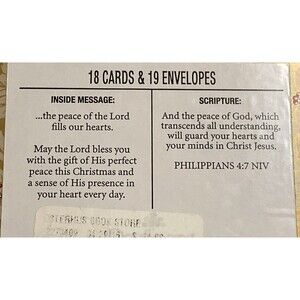 18 CARDS & 19 ENVELOPES
INSIDE MESSAGE:
...the peace of the Lord
fills our hearts.
May the Lord bless you
with the gift of His perfect
peace this Christmas and
a sense of His presence in
your heart every day.
SCRIPTURE:
And the peace of God, which
transcends all understanding,
will guard your hearts and
your minds in Christ Jesus.
PHILIPPIANS 4:7 NIV
BOOK STORE